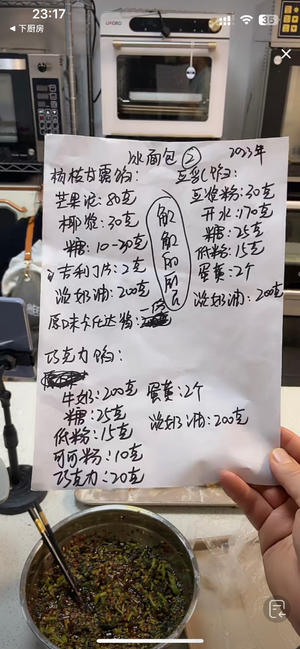 23:17
35
下厨房
UKOEO
冰面包② 2023年
杨枝甘露馅:
芒果泥:80克
椰浆:30克
糖:10-20克
吉利丁片:2克
淡奶油:200克
原味卡仕达馅:
豆乳馅:
豆浆粉:30克
开水:170克
糖:25克
低粉:15克
蛋黄:2个
淡奶油:200克
巧克力馅:
牛奶:200克 蛋黄:2个
糖:25克
淡奶油:200克
低粉:15克
可可粉:10克
巧克力:20克